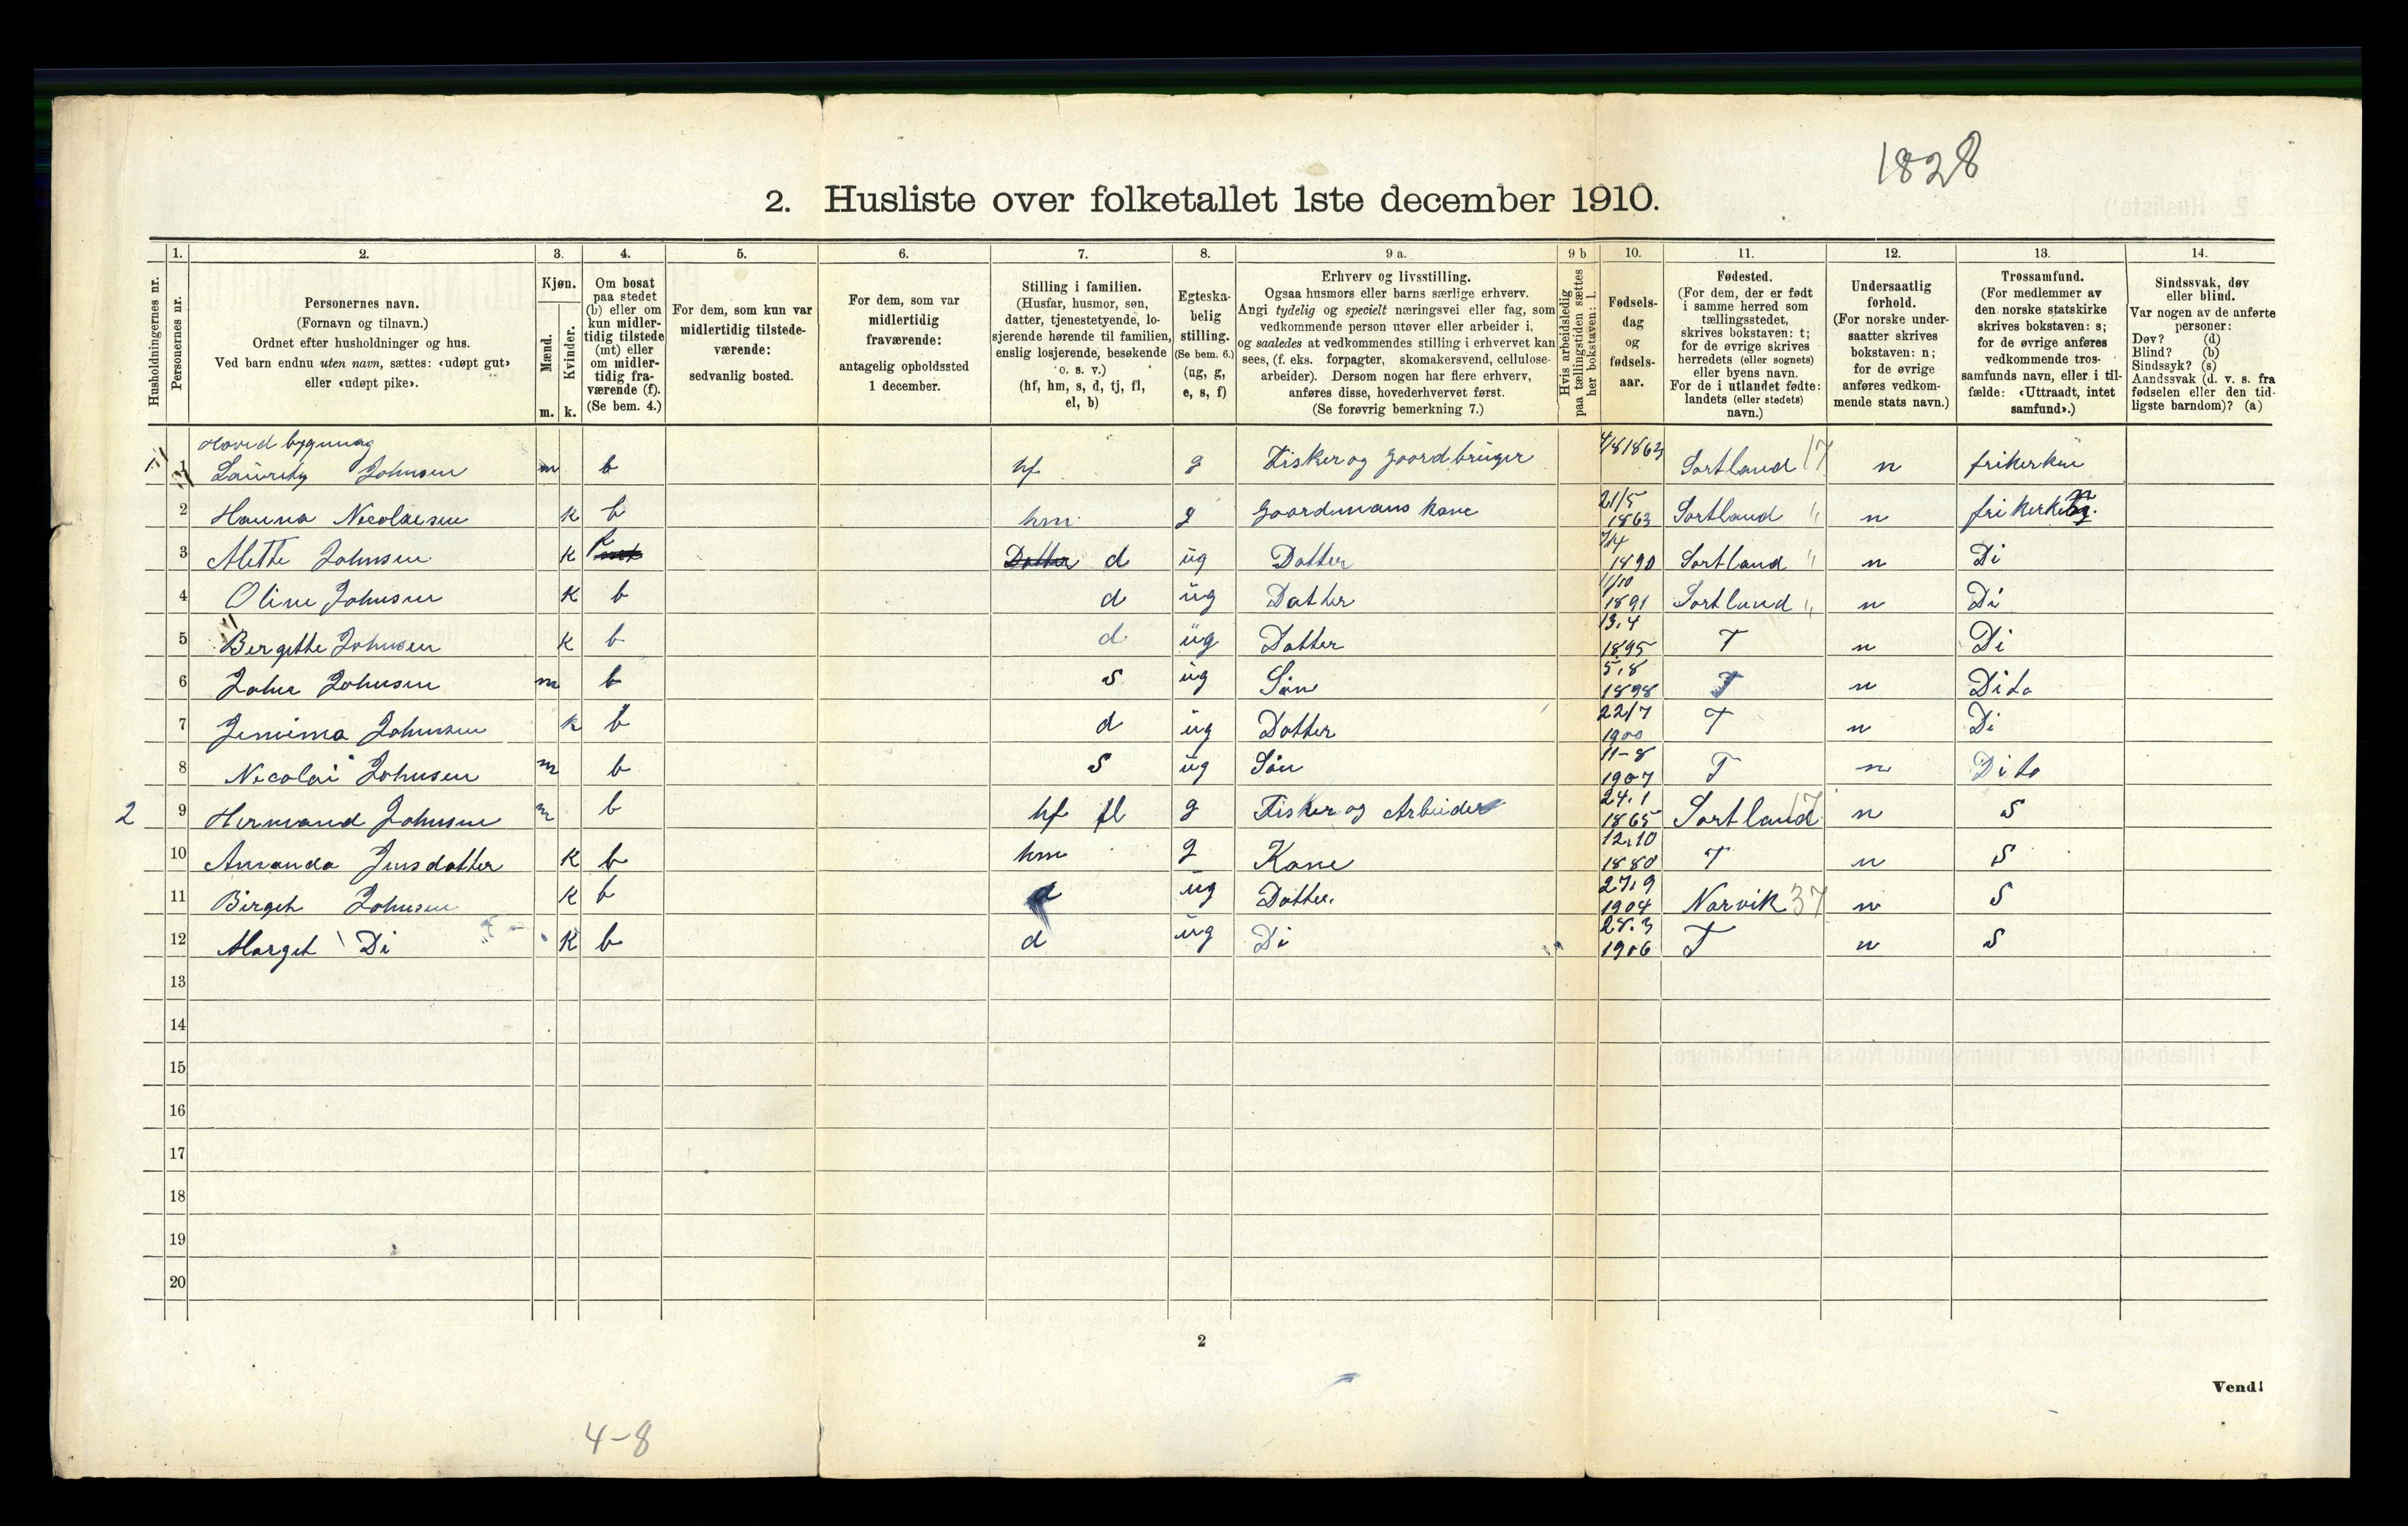 1828
2. Husliste over folketallet 1ste december 1910.
1. 2. 3. 4. 5. 6. 7. 8. 9 a. 9 b 10. 11. 12. 13. 14.
Husholdningernes nr.
Personernes nr.
Personernes navn.
(Fornavn og tilnavn.)
Ordnet efter husholdninger og hus.
Ved barn endnu uten navn, sættes: «udøpt gut»
eller «udøpt pike».
Kjøn.
Mænd.
Kvinder.
m. k.
Om bosat
paa stedet
(b) eller om
kun midler-
tidig tilstede
(mt) eller
om midler-
tidig fra-
værende (f).
(Se bem. 4.)
For dem, som kun var
midlertidig tilstede-
værende:
sedvanlig bosted.
For dem, som var
midlertidig
fraværende:
antagelig opholdssted
1 december.
Stilling i familien.
(Husfar, husmor, søn,
datter, tjenestetyende, lo-
sjerende hørende til familien,
enslig losjerende, besøkende
o. s. v.)
(hf, hm, s, d, tj, fl,
el, b)
Egteska-
belig
stilling.
(Se bem. 6.)
(ug, g,
e, s, f)
Erhverv og livsstilling.
Ogsaa husmors eller barns særlige erhverv.
Angi tydelig og specielt næringsvei eller fag, som
vedkommende person utøver eller arbeider i,
og saaledes at vedkommendes stilling i erhvervet kan
sees, (f. eks. forpagter, skomakersvend, cellulose-
arbeider). Dersom nogen har flere erhverv,
anføres disse, hovederhvervet først.
(Se forøvrig bemerkning 7.)
Hvis arbeidsledig
paa tællingstiden sættes
her bokstaven: l.
Fødsels-
dag
og
fødsels-
aar.
Fødested.
(For dem, der er født
i samme herred som
tællingsstedet,
skrives bokstaven: t;
for de øvrige skrives
herredets (eller sognets)
eller byens navn.
For de i utlandet fødte:
landets (eller stedets)
navn.)
Undersaatlig
forhold.
(For norske under-
saatter skrives
bokstaven: n;
for de øvrige
anføres vedkom-
mende stats navn.)
Trossamfund.
(For medlemmer av
den norske statskirke
skrives bokstaven: s;
for de øvrige anføres
vedkommende tros-
samfunds navn, eller i til-
fælde: «Uttraadt, intet
samfund».)
Sindssvak, døv
eller blind.
Var nogen av de anførte
personer:
Døv? (d)
Blind? (b)
Sindssyk? (s)
Aandssvak (d. v. s. fra
fødselen eller den tid-
ligste barndom)? (a)
Hovedbygning
1 1 Lauritz Johnsen m b hf g Fisker og gaardbruger 4/8 1863 Sortland 17 n frikerken
2 Hanna Nicolaisen k b hm g Gaardmans kone 21/5 1863 Sortland " n frikerken
3 Alette Johnsen k Datter d ug Datter 7/4 1890 Sortland " n Di
4 Oline Johnsen k b d ug Datter 11/10 1891 Sortland " n Di
5 Bergitte Johnsen k b d ug Datter 13.4 1895 T n Di
6 Johan Johnsen m b s ug Sön 5.8 1898 T n Dito
7 Jenima Johnsen k b d ug Datter 22/7 1900 T n Di
8 Nicolai Johnsen m b s ug Sön 11-8 1907 T n Dito
2 9 Hermand Johnsen m b hf fl g Fisker og Arbeider 24.1 1865 Sortland 17 n S
10 Amanda Jensdatter k b hm g Kone 12.10 1880 T n S
11 Birget Johnsen k b d ug Datter. 27.9 1904 Narvik 37 n S
12 Marget Di k b d ug Di 28.3 1906 T n S
13
14
15
16
17
18
19
20
2
Vend!
4-8